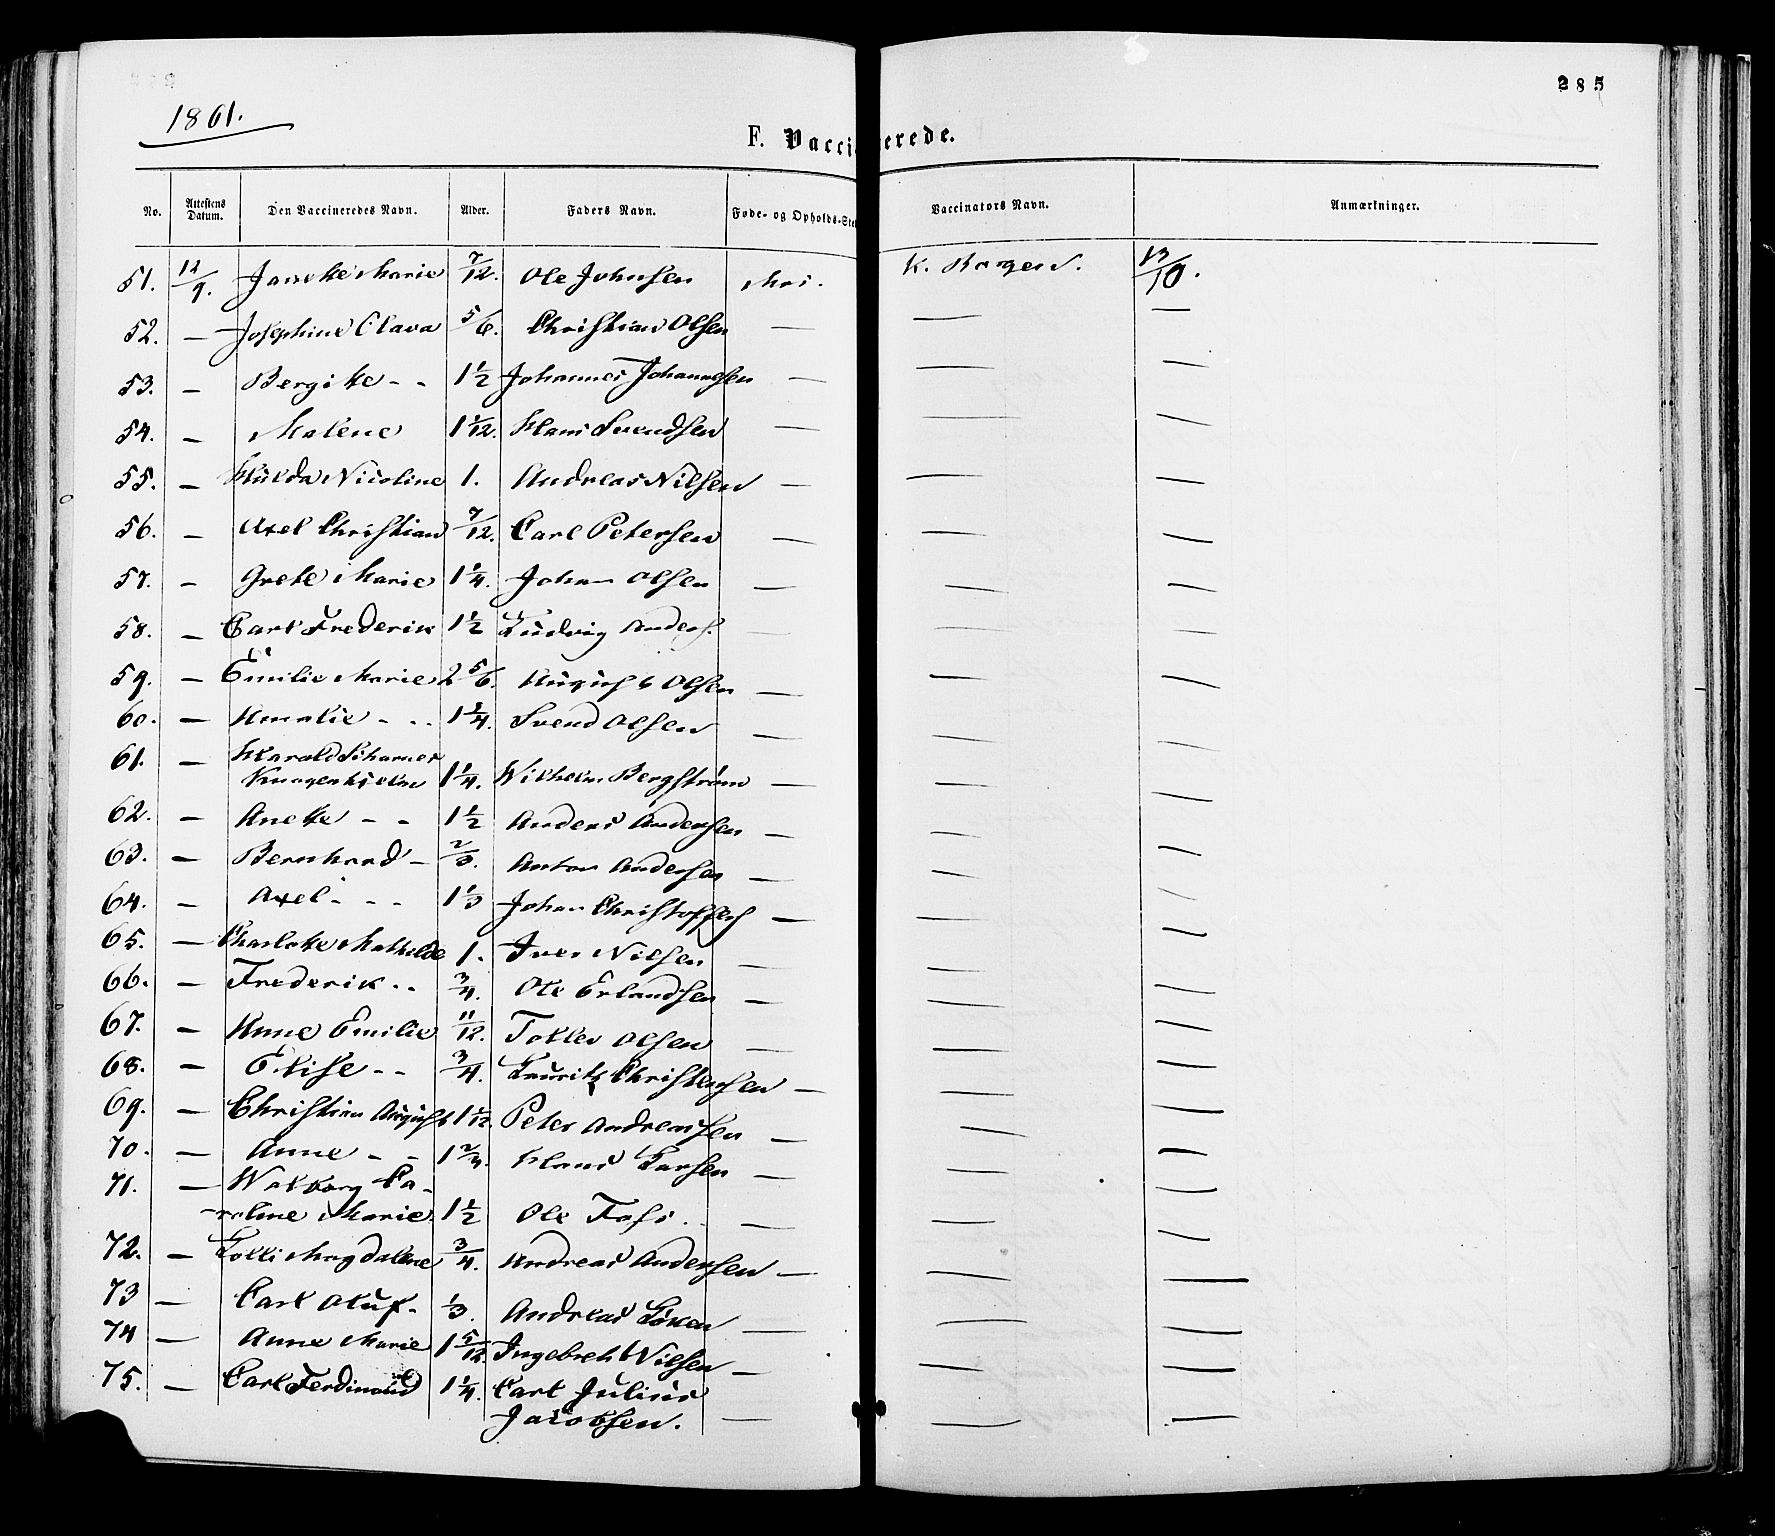 285
1861.
F. Vaccinerede.
No. Attestens Datum. Den Vaccineredes Navn. Alder. Faders Navn. Føde- og Opholds-Ste Vaccinators Navn. Anmærkninger.
51. 12/9. Marie 7/12. Ole Johnsen Mos. K. 13/10.
52. — Josephine Clara 5/6. Christian Olsen — — —
53. — Bergite - - 1 1/2 Johannes Johannesen — — —
54. — Malene 1 1/12. Hans Svendsen — — —
55. — Hulda Nicoline 1. Andreas Nilsen — — —
56. — Axel Christian 7/12. Carl Petersen — — —
57. — Grete Marie 1 1/4. Johan Olsen — — —
58. — Carl Frederik 1 1/2 Ludvig Anders. — — —
59. — Emilie Marie 2 5/6. August Olsen — — —
60. — Amalie - - - 1 1/4. Svend Olsen — — —
61. — Harald
1 1/4. Wilhelm Bergstrøm — — —
62. — Anette - - 1 1/2 Anders Andersen — — —
63. — Bernhard - 2/3. Anton Andersen — — —
64. — Axel - - - 1 1/3 Johan Christoffers — — —
65. — Charlotte Mathilde 1. Iver Nilsen — — —
66. — Frederik - - 3/4. Ole Erlandsen — — —
67. — Anne Emilie 11/12. Tollef Olsen — — —
68. — Elise - - 3/4. Lauritz Christensen — — —
69. — Christian August 1 1/12. Peter Andreassen — — —
70. — Anne - - 1 2/3. Hans Larsen — — —
71. — Walborg Ca-
roline Marie 1 1/2 Ole — — —
72. — Lolli Magdalene 3/4. Andreas Andersen — — —
73 — Carl Oluf - 1/3. Andreas Løken — — —
74 — Anne Marie 1 5/12. Ingebret Nilsen — — —
75. — Carl Ferdinand 1 1/4. Carl Julius
Jacobsen. — — —